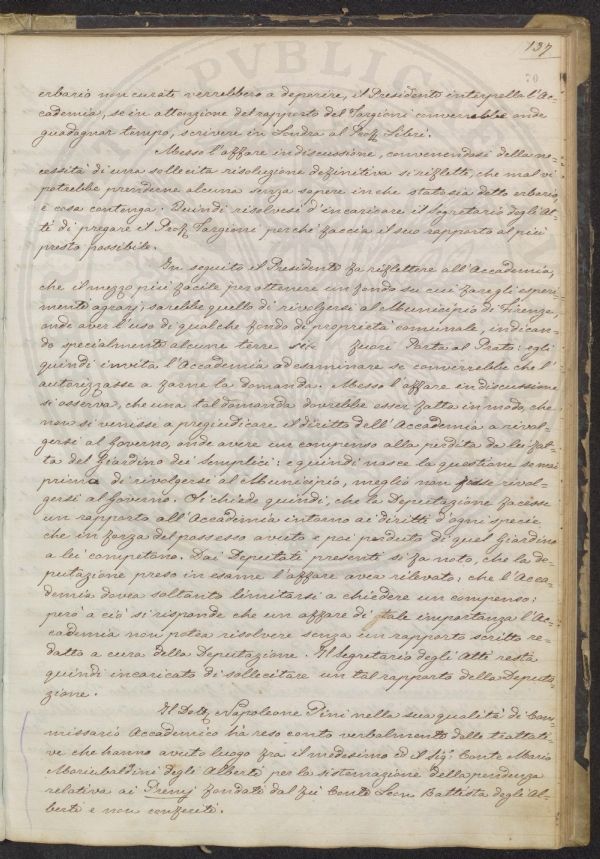 137
70
erbario non curati verrebbero a deperire, il Presidente interpella l'Ac=
cademia, se in attenzione del rapporto del Targioni converrebbe onde
guadagnar tempo, scrivere in Londra al Prof. Libri.
Messo l'affare in discussione, convenendosi della ne=
cessità di una sollecita risoluzione definitiva si riflette, che mal vi
potrebbe prenderne alcuna senza sapere in che stato sia detto erbario,
e cosa contenga. Quindi risolvesi d'incaricare il Segretario degli At=
ti di pregare il Prof. Targioni perché faccia il suo rapporto al più
presto possibile.
In seguito il Presidente fa riflettere all'Accademia,
che il mezzo più facile per ottenere un fondo su cui fare gli esperi=
menti agrarj, sarebbe quello di rivolgersi al Municipio di Firenze,
onde aver l'uso di qualche fondo di proprietà comunale, indican=
do specialmente alcune terre fuori Porta al Prato: egli
quindi invita l'Accademia ad esaminare se converrebbe che l'
autorizzasse a farne la domanda. Messo l'affare in discussione
si osserva, che una tal domanda dovrebbe esser fatta in modo, che
non si venisse a pregiudicare il diritto dell'Accademia a rivol=
gersi al Governo, onde avere un compenso alla perdita da lei fat=
ta del Giardino dei Semplici: e quindi nasce la questione se mai
prima di rivolgersi al Municipio, meglio non fosse rivol=
gersi al Governo. Si chiede quindi, che la Deputazione facesse
un rapporto all'Accademia intorno ai diritti d'ogni specie
che in forza del possesso avuto e poi perduto di quel Giardino
a lei competono. Dai Deputati presenti si fa noto, che la de=
putazione preso in esame l'affare avea rilevato, che l'Acca=
demia dovea soltanto limitarsi a chiedere un compenso:
però a ciò si risponde che un affare di tale importanza l'Ac=
cademia non potea risolvere senza un rapporto scritto re=
datto a cura della Deputazione. Il Segretario degli Atti resta
quindi incaricato di sollecitare un tal rapporto della Deputa=
zione.
Il Dott. Napoleone Pini nella sua qualità di Com=
missario Accademico ha reso conto verbalmente delle trattati=
ve che hanno avuto luogo fra il medesimo ed il Sig. Conte Mario
Moriubaldini degli Alberti per la sistemazione della pendenza
relativa ai Premj fondati dal fù Conte Leon Battista degli Al=
berti e non conferiti.